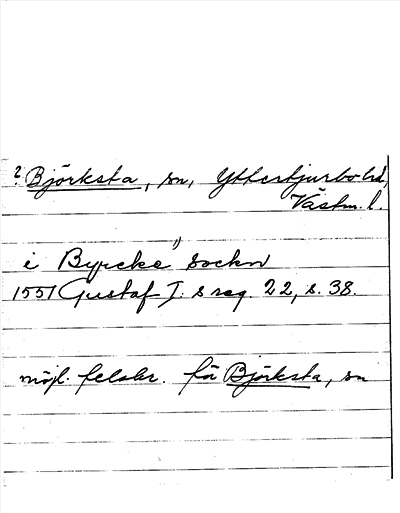 ? Björksta, sn, Yttertjurbo hd,
Västm. l.
i Byrcke 1) sockn
1551 Gustaf I:s reg. 22, s. 38.
möjl. felskr. för Björksta, sn